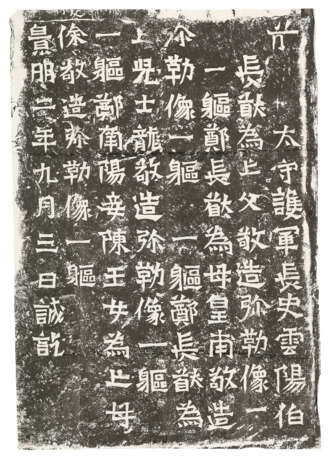 太守護軍長史雲陽伯
長猷為亡父敬造弥勒像一
一軀鄭長猷為母皇甫敬造
弥勒像一軀一軀鄭長猷為
亡児士龍敬造弥勒像一軀
一軀鄭南陽妾陳玉女為亡母
徐敬造弥勒像一軀
景明二年九月三日誡訖